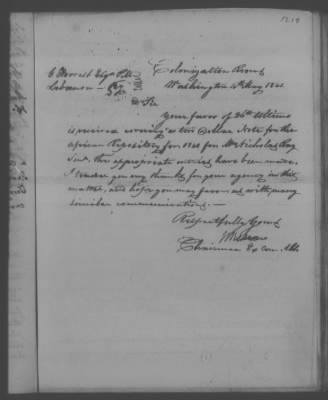 1218
Colonization Rooms
Washington 4th May 1841
Esqr P.M.
Lebanon
D Sir
Your favor of 26th Ultimo
is received covering a two Dollar Note, for the
African Repository for 1841 for Mr Nicholas Day
and the appropriate entries have been made.
I tender you my thanks for your agency in this
matter, and hope you may favor us with many
similar communications.—
Respectfully Yours
Chairman Ex com.